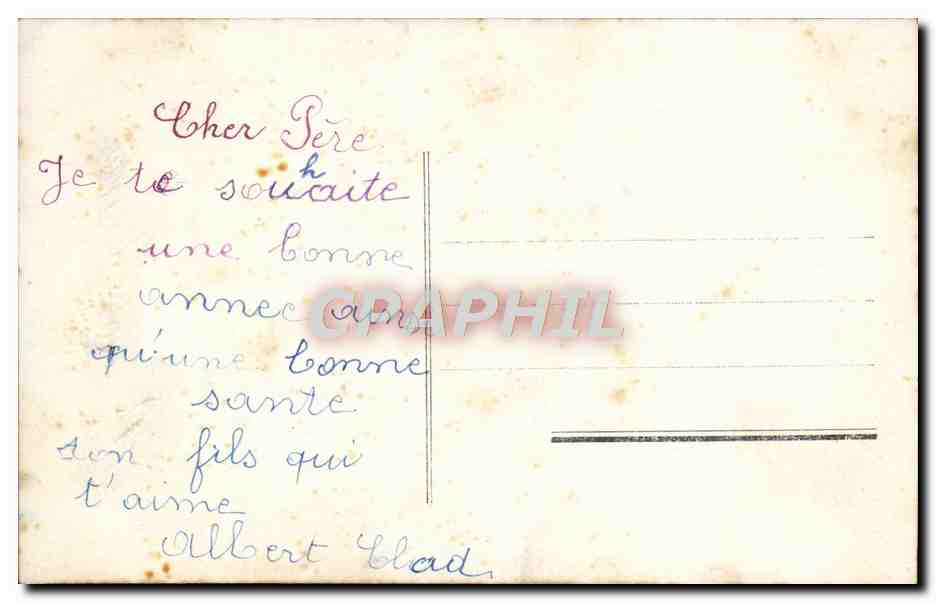 Cher Père
Je te souhaite
une bonne
annee ainsi
qu'une bonne
sante
ton fils qui
t'aime
Albert Clad
CPAPHIL